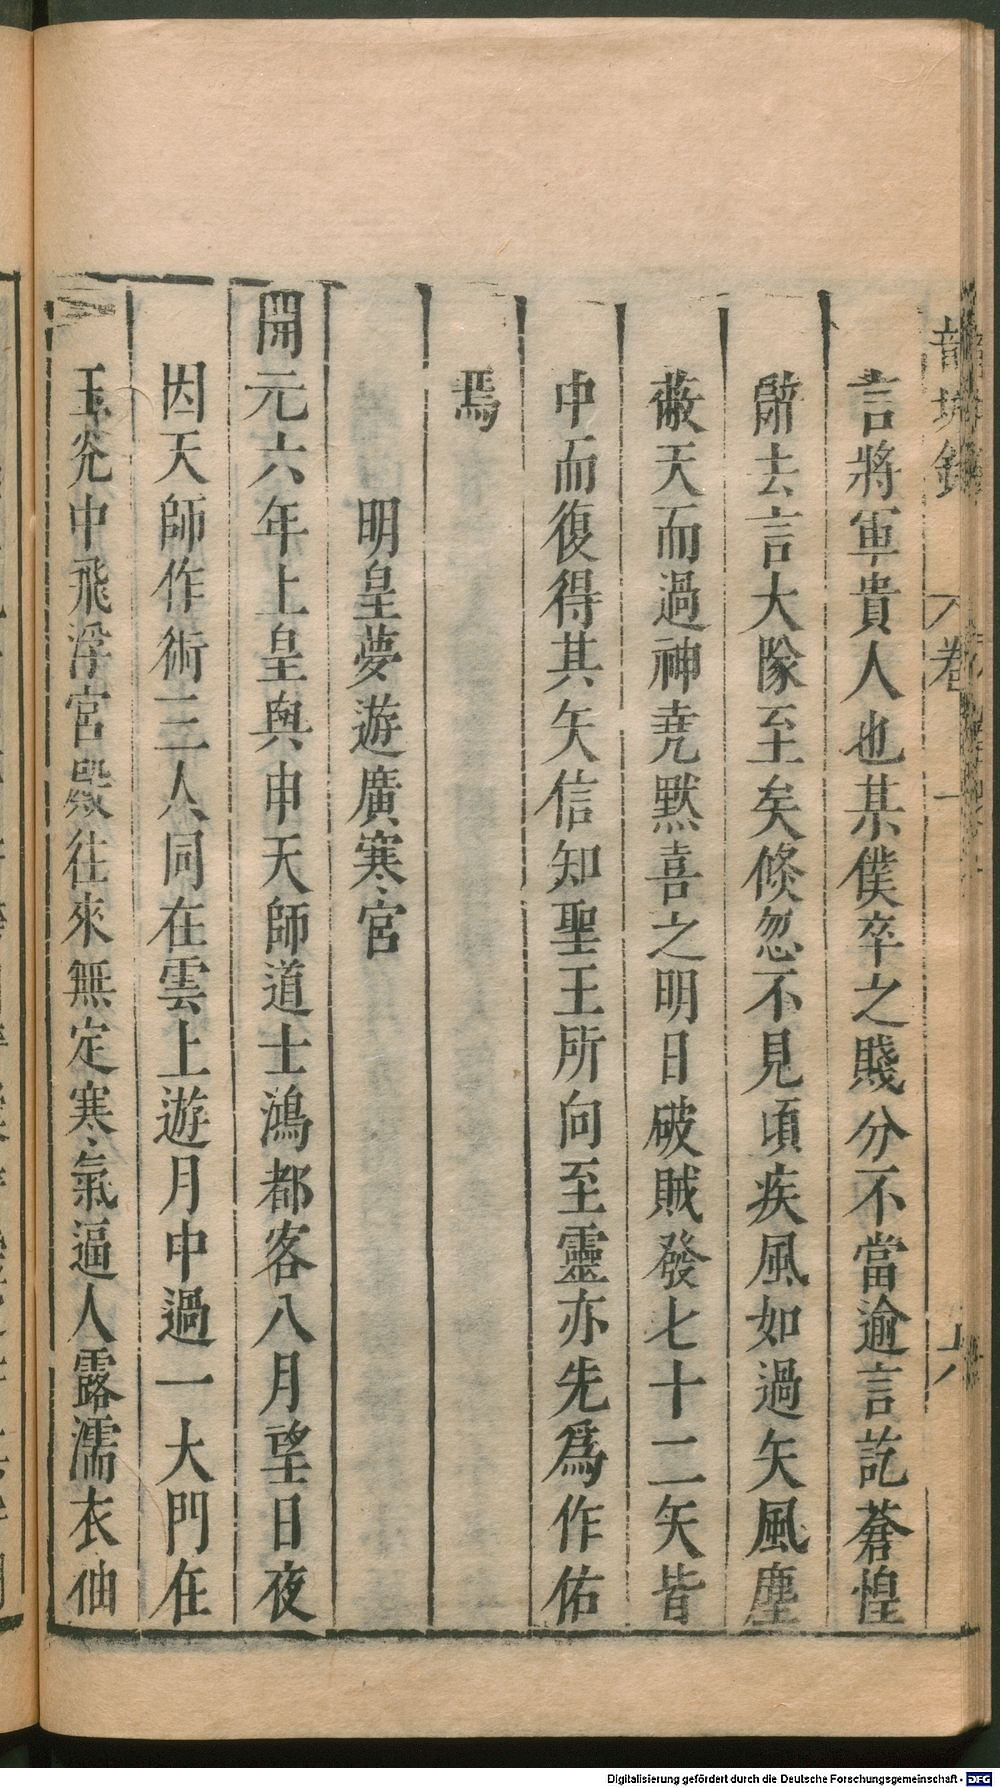 言將軍貴人也某僕卒之賤分不當逾言訖蒼惶
辭去言大隊至矣倐忽不見頃疾風如過矢風塵
蔽天而過神堯默喜之明日破賊發七十二矢皆
中而復得其矢信知聖王所向至靈亦先爲作佑
焉
明皇夢遊廣寒宮
開元六年上皇與申天師道士鴻都客八月望日夜
因天師作術三人同在雲上遊月中過一大門在
玉光中飛浮宮殿往來無定寒氣逼人露濡衣袖
卷一
六
Digitalisierung gefördert durch die Deutsche Forschungsgemeinschaft - DFG